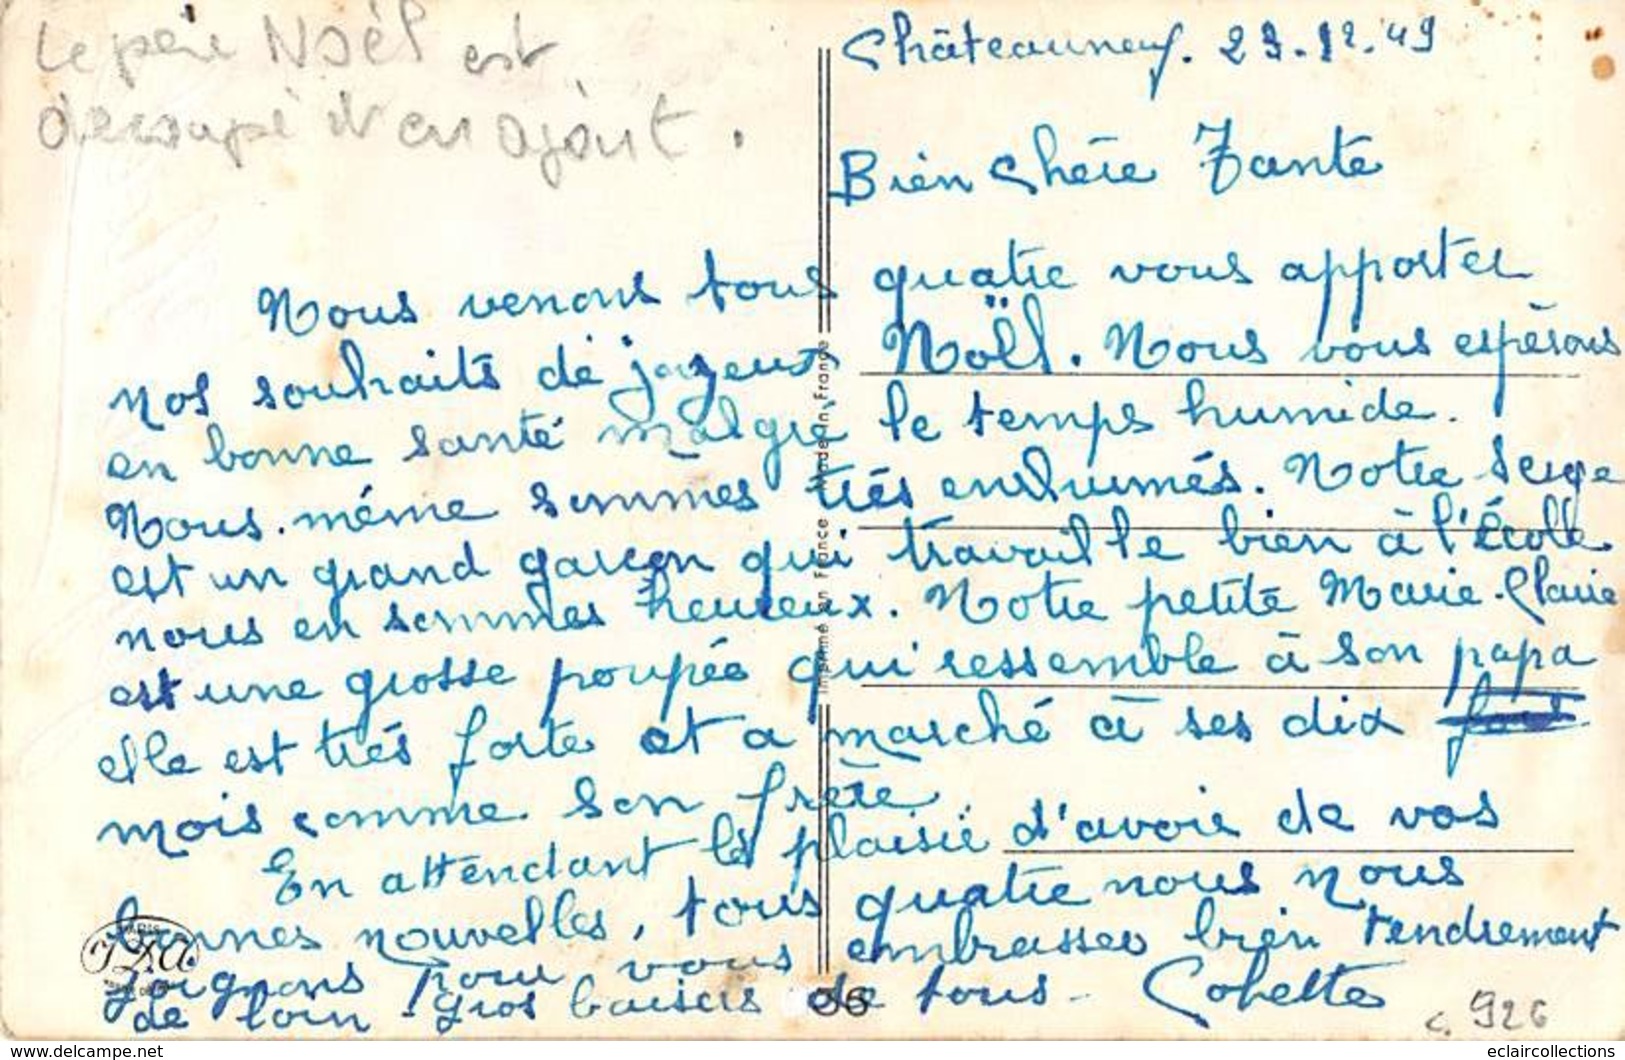 Le père Noël est
découpé et en ajout.
Châteauneuf. 23.12.49
Bien Chère Tante
Nous venons tous quatre vous apporter
nos souhaits de joyeux Noël. Nous vous espérons
en bonne santé malgré le temps humide.
Nous-même sommes très enrhumés. Notre Serge
est un grand garçon qui travaille bien à l'école
nous en sommes heureux. Notre petite Marie-Claire
est une grosse poupée qui ressemble à son papa
elle est très forte et a marché à ses dix
mois comme son frère.
En attendant le plaisir d'avoir de vos
bonnes nouvelles, tous quatre nous nous
joignons pour vous embrasser bien tendrement
de loin. Gros baisers de tous - Cohette
Imprimé en France Made in France
PARIS
I.D.A.
36
c. 926
www.delcampe.net
eclaircollections